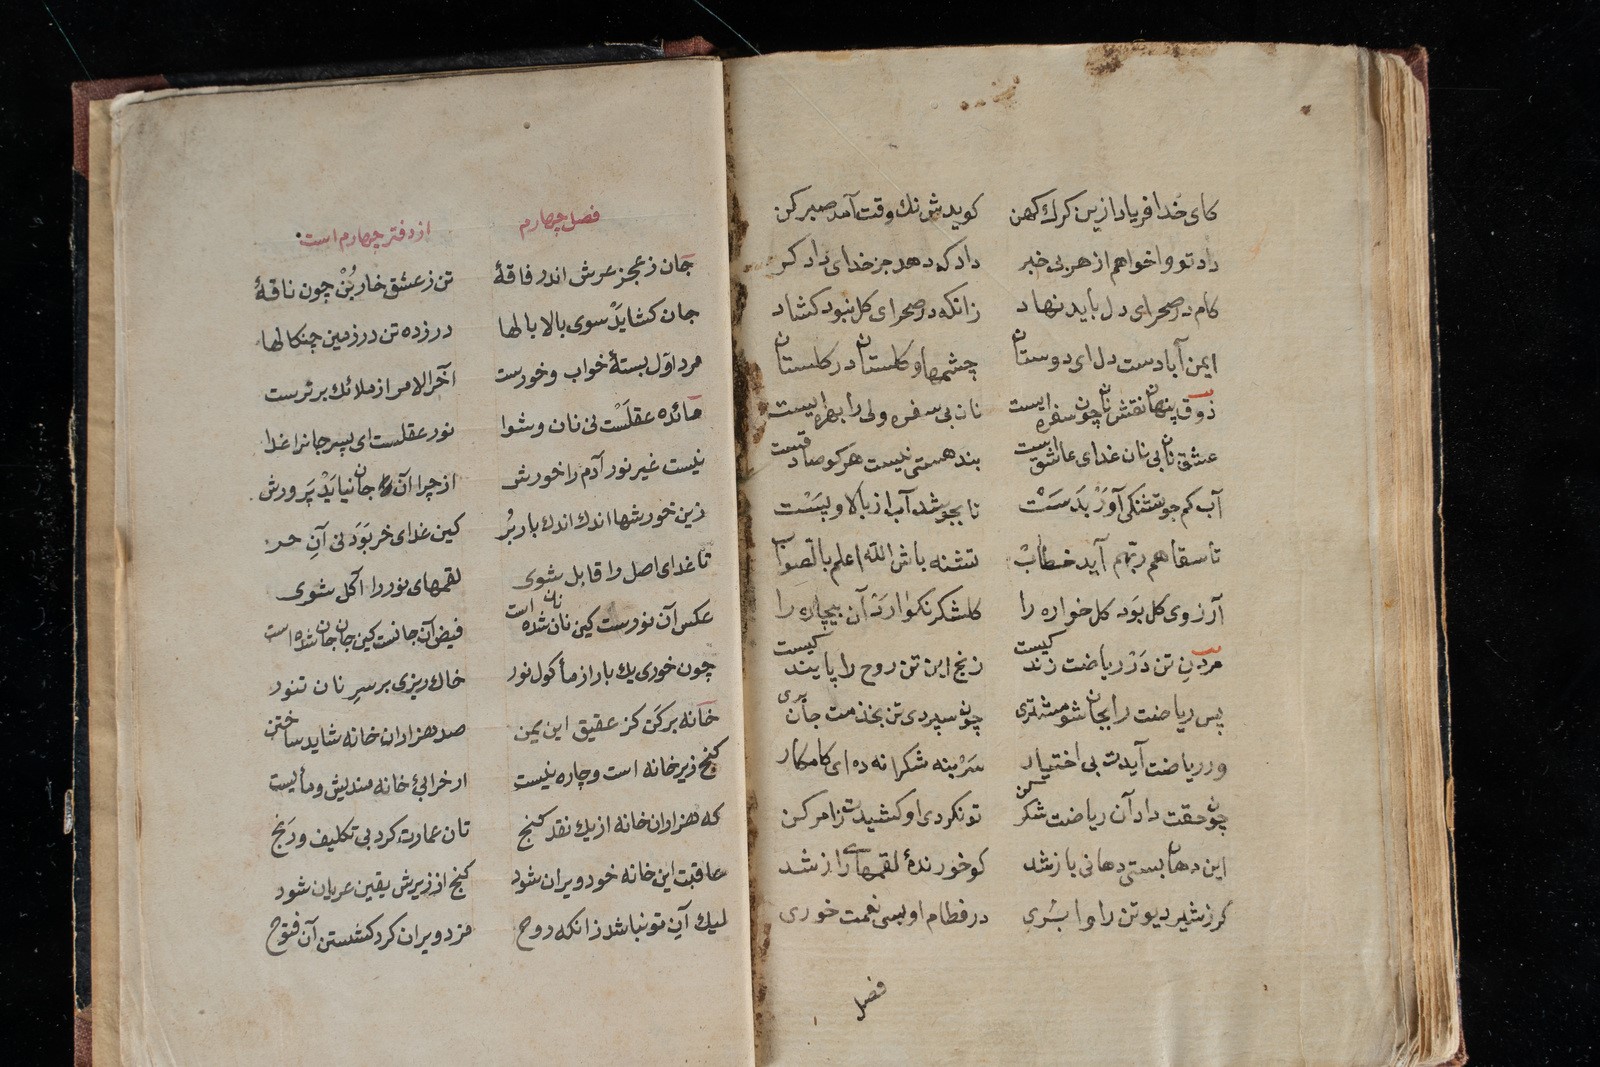 کای خدا فریاد ازین کرك کهن کویدش نك وقت آمد صبر کن
داد تو واخواهم از هر بی خبر داد که دهد جز خدای دادکر
کام در صحرای دل باید نهاد زانکه در صحرای کل نبود کشاد
ایمن آبادست دل ای دوستان چشمها و کلستان در کلستان
ذوق پنهان نقش نان چون سفره ایست نان بی سفره ولی را بهره ایست
عشق نان بی نان غدای عاشق است بند هستی نیست هر کو صادقست
آب کم جو تشنکی آوَرْ بَدَسَتْ تا بجوشد آب از بالا و پَسَتْ
تا سقاهم ربّهم آید خطابْ تشنه باش الله اعلم بالصّوابْ
آرزوی کل بَود کل خواره را کلشکر نکوارَدْ آن بیچاره را
مردنِ تن دَرْ ریاضت زندکیست رنج این تن روح را پایندکیست
پس ریاضت را بجان شو مشتری چون سپردی تن بخدمت جان بری
ور ریاضت آیدت بی اختیار سَرْ بنه شکرانه ده ای کامکار
چون حقت داد آن ریاضت شکر کن تو نکردی او کشیدت ز امر کن
این دهان بستی دهانی باز شد کو خورندهٔ لقمهای راز شد
کر ز شیر دیو تن را وا بُری در فطام او بسی نعمت خوری
فصل
فصل چهارم از دفتر چهارم است
جان ز عجز عرش اندر فاقهٔ تن ز عشق خار بُنْ چون ناقهٔ
جان کشاید سوی بالا بالها در زده تن در زمین چنکالها
مرد اوّل بستهٔ خواب و خورست آخر الامر از ملائك برترست
مائده عقلَسْت نی نان و شوا نور عقلست ای پسر جانرا غدا
نیست غیر نور آدم را خورش از جز آن جان نیابَدْ پَرورش
زین خورشها اندك اندك باز بُر کین غدای خر بَوَد نی آنِ حر
تا غدای اصل را قابل شوی لقمهای نور را آکل شوی
عکس آن نورست کین نان نان شده است فیض آن جانست کین جان جان شده است
چون خوری یك بار از مأکول نور خاك ریزی بر سرِ نان تنور
خانه برکَن کز عقیق این یمن صد هزاران خانه شاید ساختن
کنج زیر خانه است و چاره نیست از خرابیٔ خانه مندیش و مأیست
که هزاران خانه از یك نقد کنج تان عمارت کرد بی تکلیف و رَنج
عاقبت این خانه خود ویران شود کنج از زیرش یقین عریان شود
لیك آنِ تو نباشد زانکه روح مزد ویران کرد کستن آن فتوح